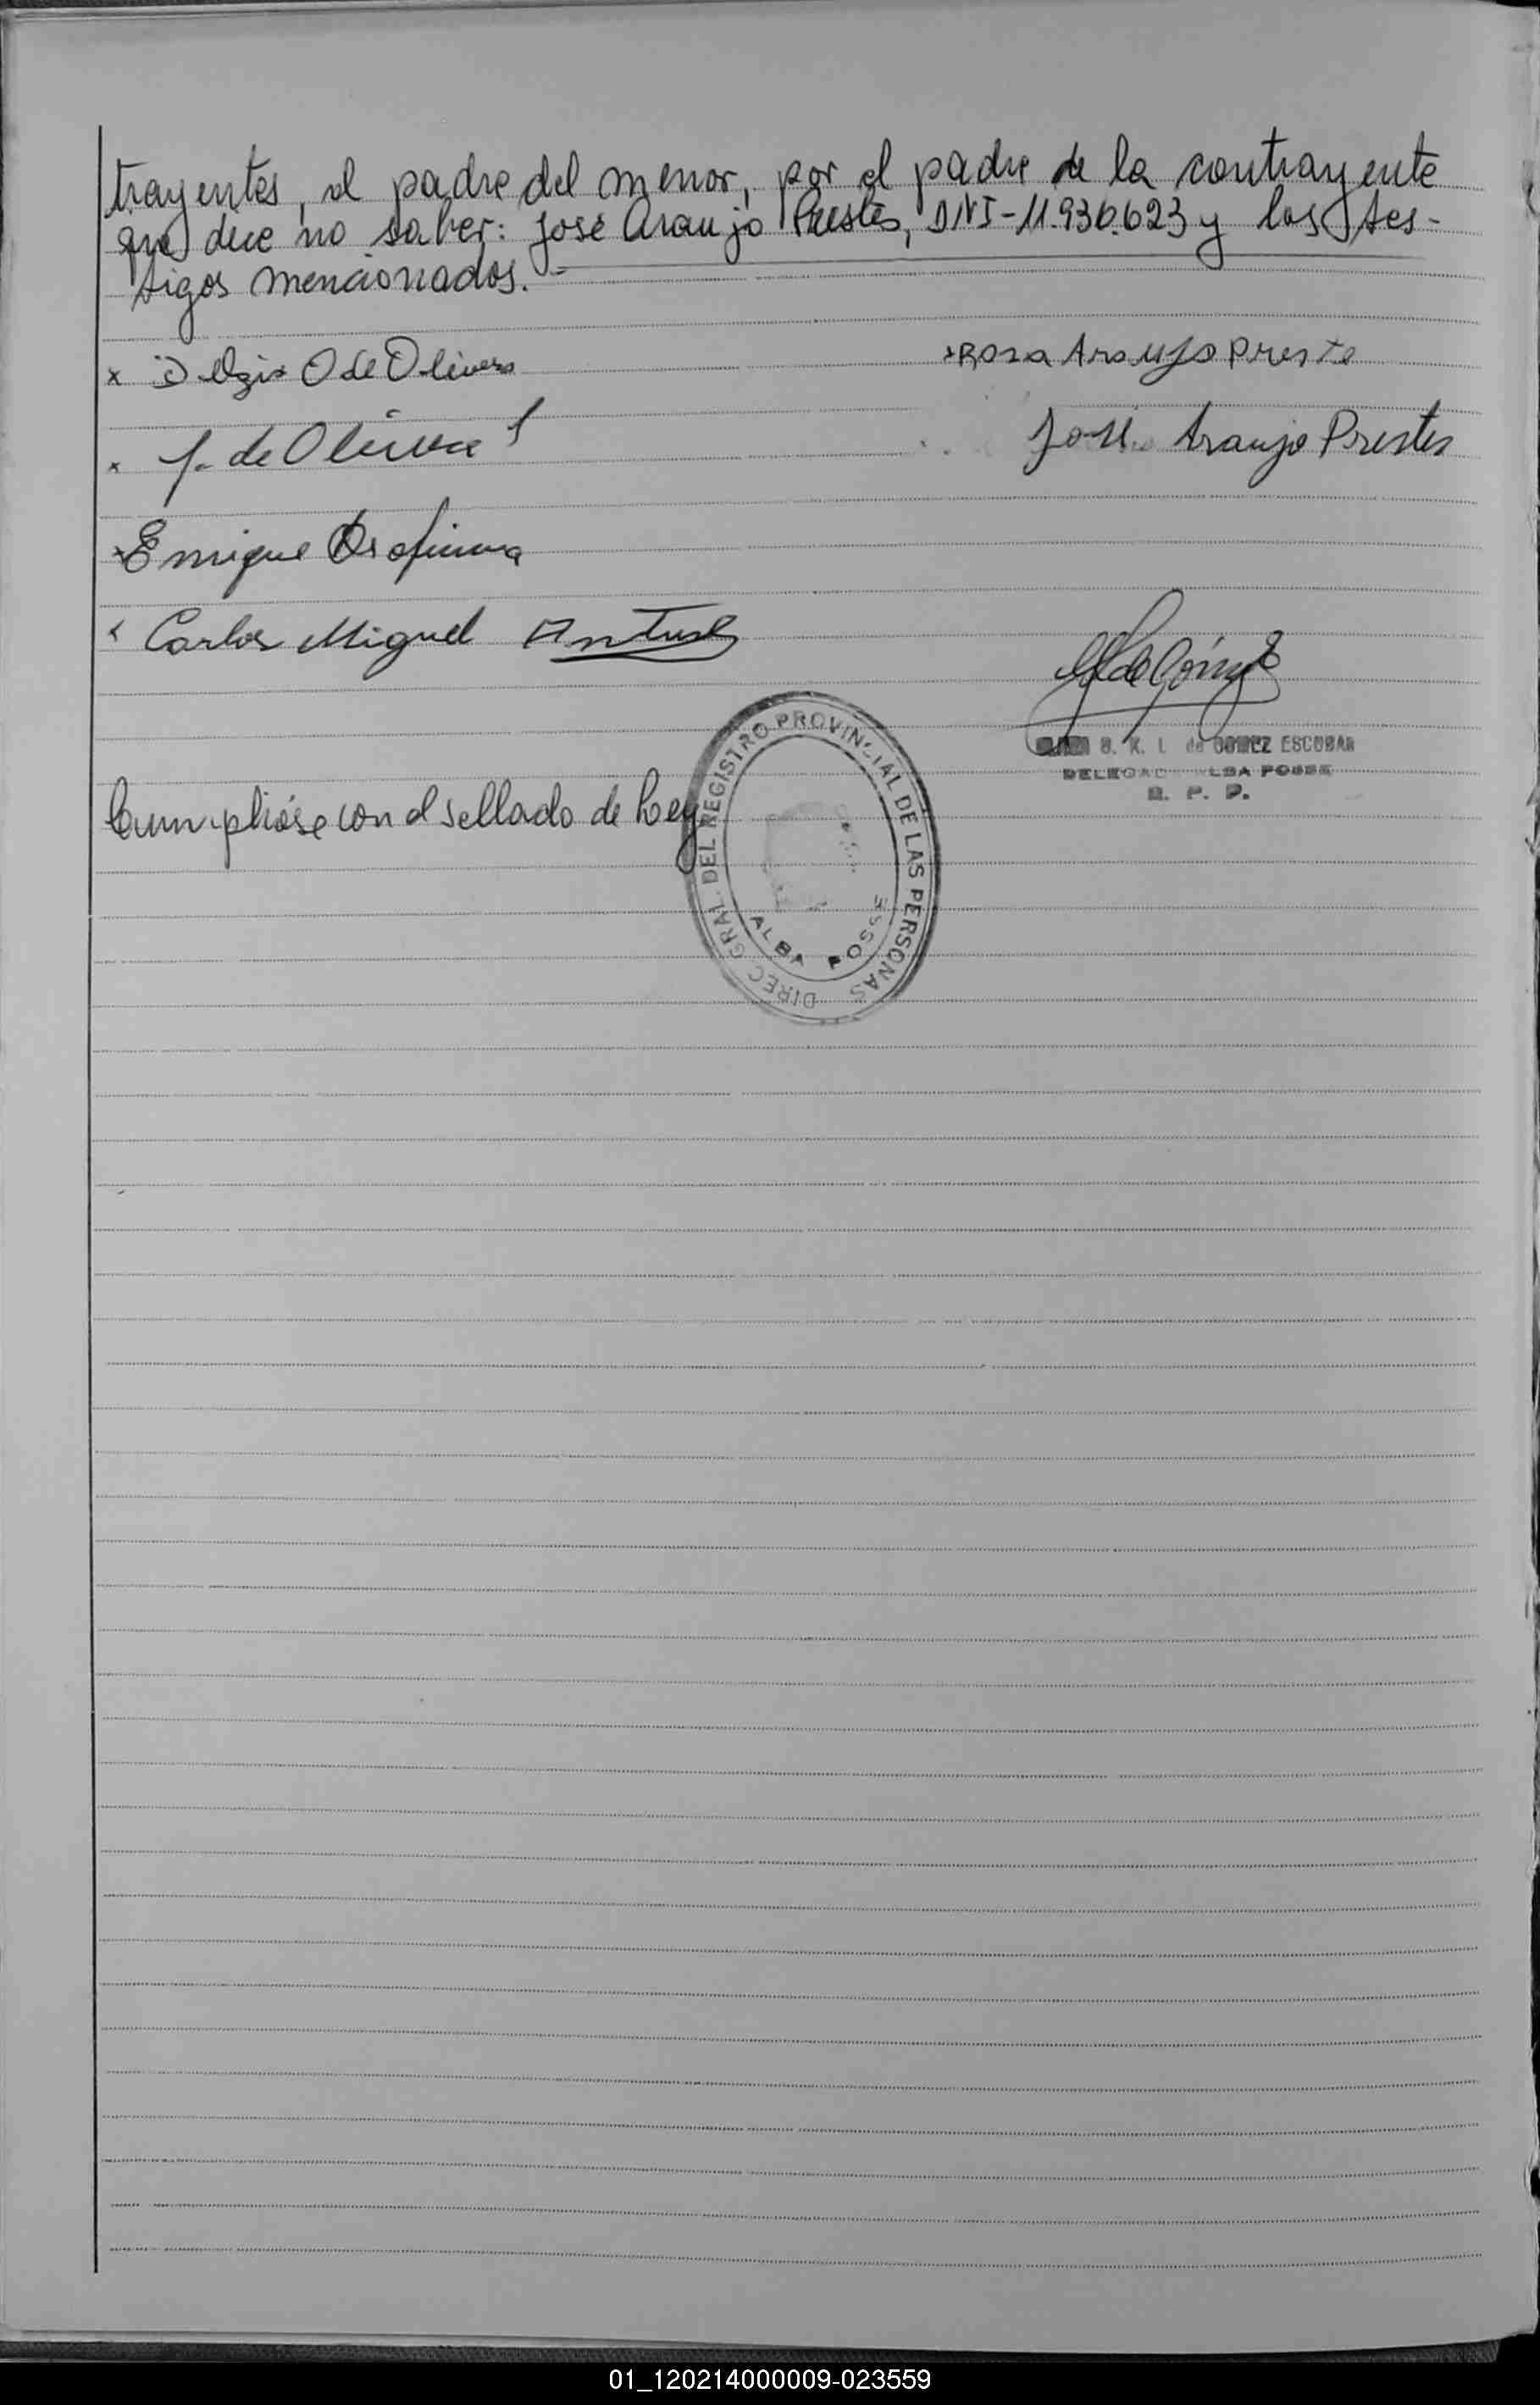 trayentes, el padre del menor, por el padre de la contrayente
que dice no saber: José Araujo Prestes, DNI-11.930.623 y los tes-
tigos mencionados.-
x O de Olivera
x Rosa Araujo Preste
x J. de Olivera
José Araujo Prestes
x Enrique
x Carlos Miguel Antunes
de Gómez
S. K. I. de GOMEZ ESCOBAR
DELEGAD ALBA POSSE
R. P. P.
Cumplióse con el sellado de Ley
DIREC GRAL DEL REGISTRO PROVINCIAL DE LAS PERSONAS
ALBA POSSE
01_120214000009-023559